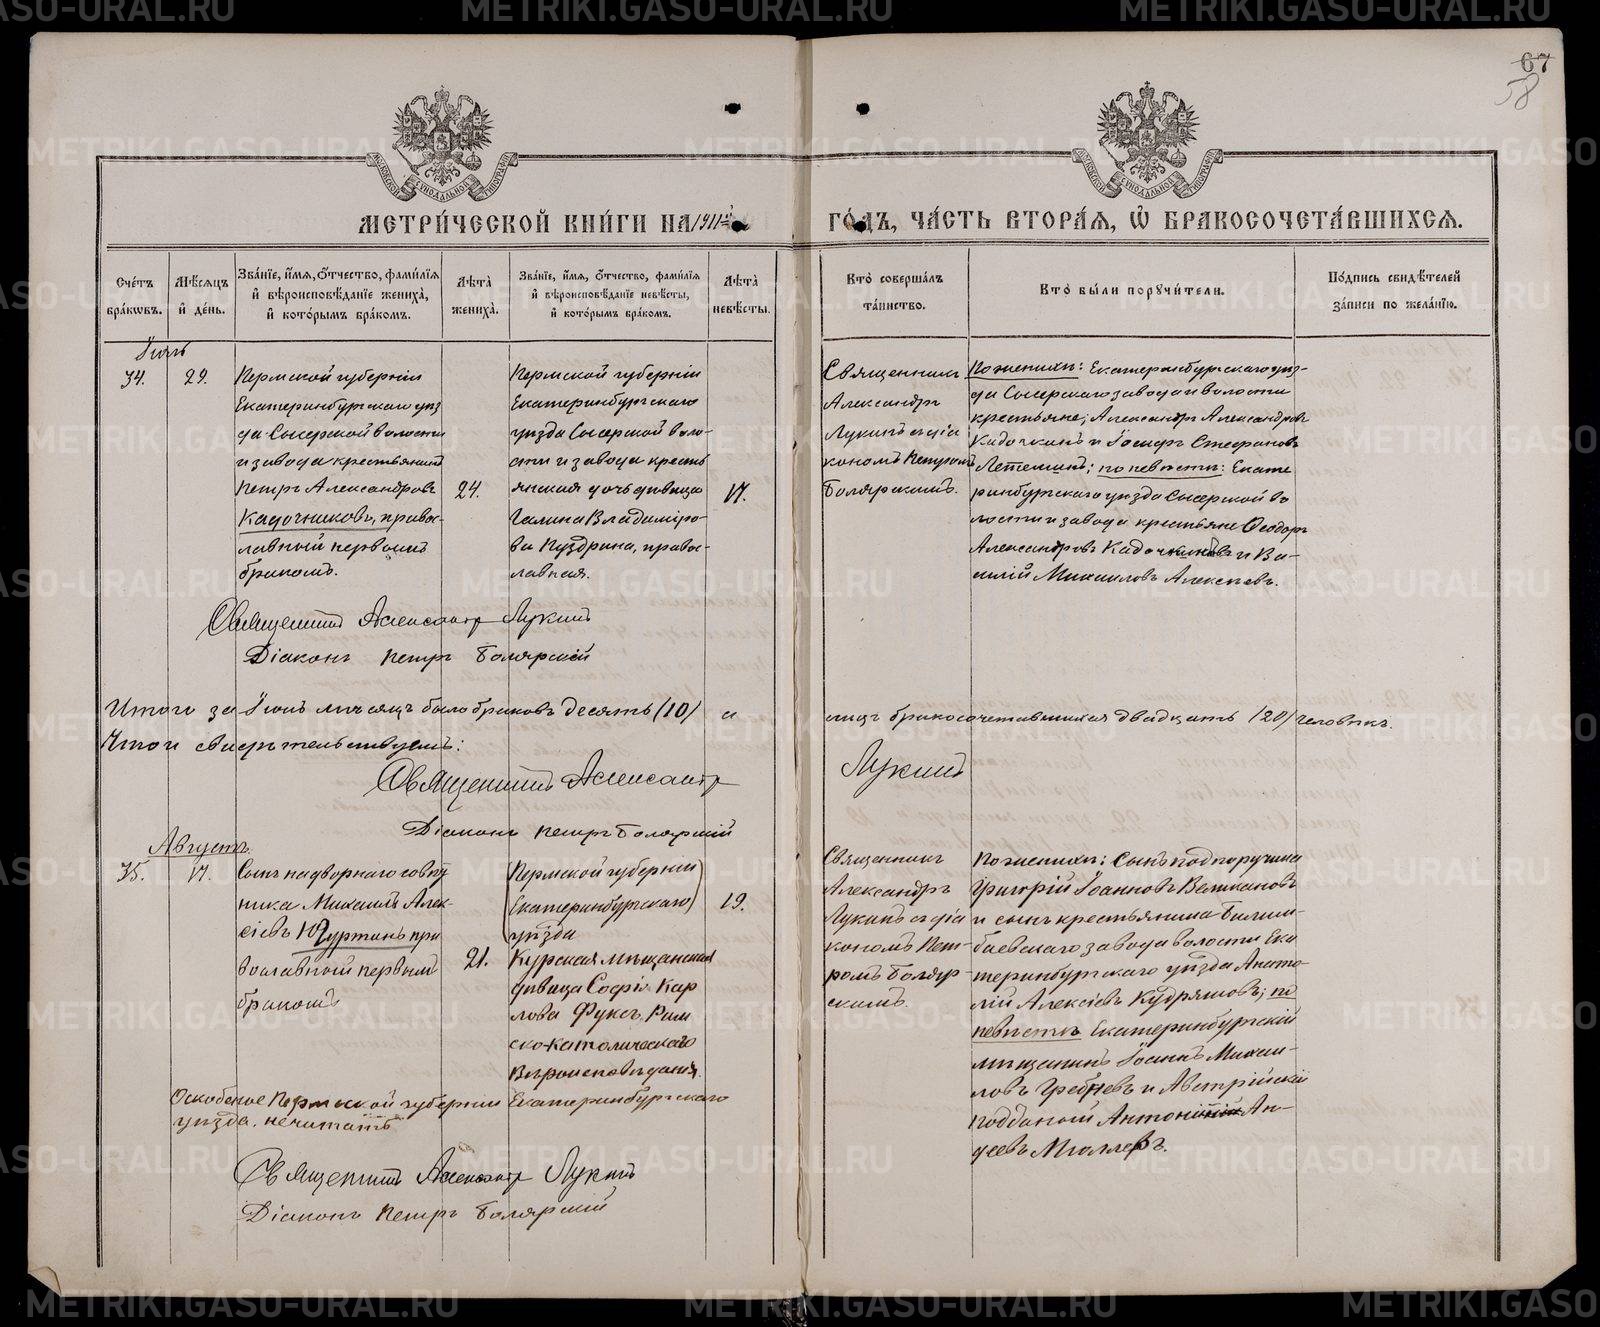 67
58
МЕТРИ́ЧЕСКОЙ КНИ́ГИ НА 1911 й ГО́ДЪ, ЧА́СТЬ ВТОРА́Я, Ѡ БРАКОСОЧЕТА́ВШИХСЯ.
Сче́тъ бра́кѡвъ.
Мѣ́сяцъ и҆ де́нь.
Зва́нїе, и҆́мя, ѻ҆́тчество, фами́лїя и҆ вѣроисповѣ́данїе жениха̀, и҆ кото́рымъ бра́комъ.
Лѣ́та̀ жениха̀.
Зва́нїе, и҆́мя, ѻ҆́тчество, фами́лїя и҆ вѣроисповѣ́данїе невѣ́сты, и҆ кото́рымъ бра́комъ.
Лѣ́та̀ невѣ́сты.
Кто̀ соверша́лъ та́инство.
Кто̀ бы́ли порꙋчи́тели.
По́дпись свидѣ́телей за́писи по жела́нїю.
Іюль
34.
29.
Пермской губерніи
Екатеринбургскаго уѣз
да Сысерской волости
и завода крестьянинъ
Петръ Александровъ
Кадочниковъ, правос-
лавный первымъ
бракомъ.
24.
Пермской губерніи
Екатеринбургскаго
уѣзда Сысерской воло-
сти и завода кресть
янская дочь дѣвица
Галина Владиміро-
ва Пуздрина, правос-
лавная.
17.
Священникъ
Александръ
Лукинъ съ діа
кономъ Петромъ
Боляркимъ.
По женихѣ: Екатеринбургскаго уѣз-
да Сысерскаго завода и волости
крестьяне; Александръ Александровъ
Кадочкинъ и Іосифъ Стефановъ
Летеминъ; по невѣстѣ: Екате
ринбургскаго уѣзда Сысерской во
лости и завода крестьяне Ѳеодоръ
Александровъ Кадочниковъ и Ва-
силій Михаиловъ Алексѣевъ.
Священникъ Александръ Лукинъ
Діаконъ Петръ Болярскій
Итого за Іюль мѣсяцъ было браковъ десять (10) а лицъ бракосочетавшихся двадцать (20) человѣкъ.
Что и свидѣтельствуемъ:
Священникъ Александръ Лукинъ
Діаконъ Петръ Болярскій
Августъ.
35.
17.
Сынъ надворнаго совѣт
ника Михаилъ Алек-
сіевъ
православный первымъ
бракомъ
21.
(Пермской губерніи
Екатеринбургскаго)
уѣзда
Курская мѣщанская
дѣвица Софія Кар
лова Фуксъ, Рим
ско-католическаго
Вѣроисповѣданія.
19.
Священникъ
Александръ
Лукинъ съ діа
кономъ Пет-
ромъ Боляр-
скимъ.
По женихѣ: Сынъ подпоручика
Григорій Іоанновъ Великановъ
и сынъ крестьянина Билим-
баевскаго завода волости Ека
теринбургскаго уѣзда Анато-
лій Алексіевъ Кудряшовъ; по
невѣстѣ Екатеринбургскій
мѣщанинъ Іоаннъ Михаи-
ловъ Гребневъ и Австрійскій
подданый Антоній Ан-
Мюллеръ.
Оскобленое Пермской губерніи Екатеринбургскаго
уѣзда. не читать
Священникъ Александръ Лукинъ
Діаконъ Петръ Болярскій
METRIKI.GASO-URAL.RU